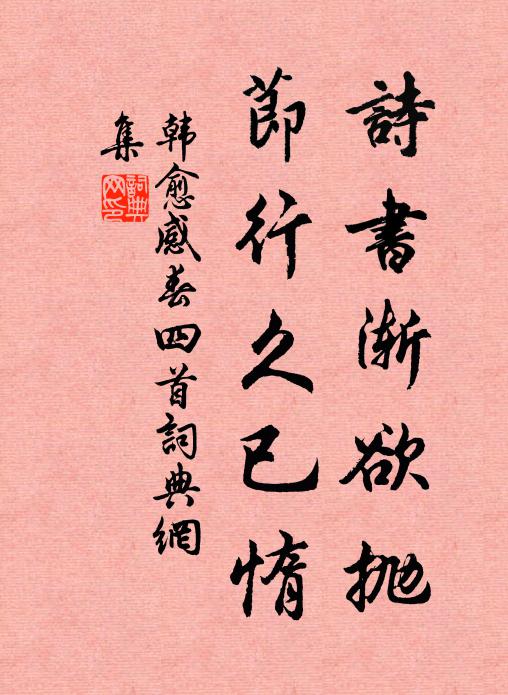 詩書漸欲抛
節行久已惰
韓愈感春四首詞典網
集
詞典
网印